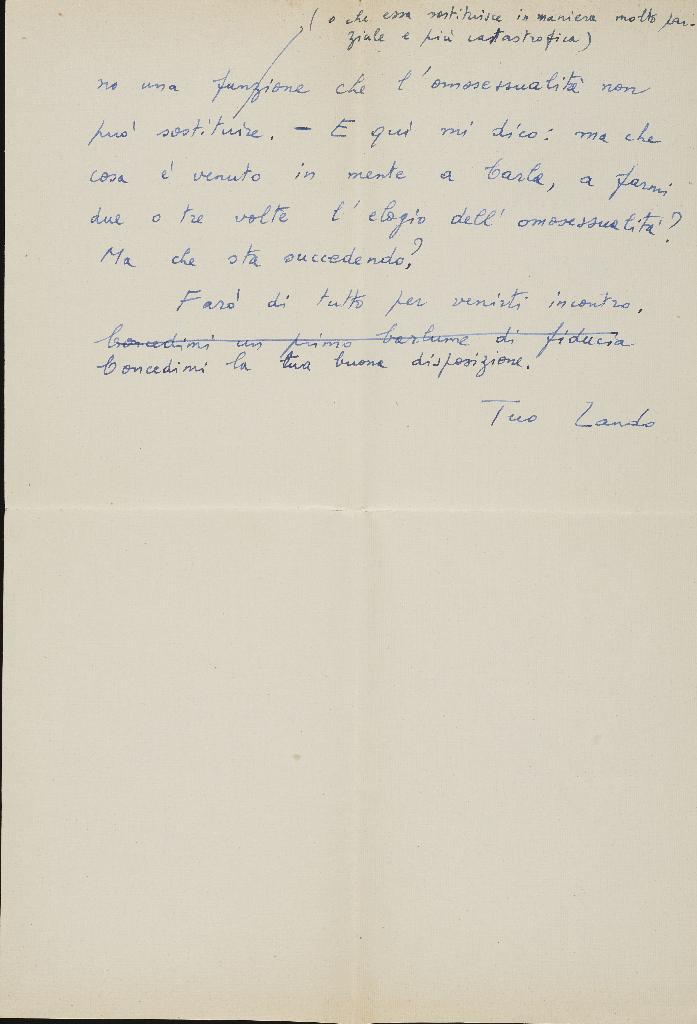 ( o che essa sostituisce in maniera molto par-
ziale e più castastrofica)
no una funzione che l'omosessualità non
può sostituire. – E qui mi dico: ma che
cosa è venuto in mente a Carla, a farmi
due o tre volte l'elogio dell'omosessualità?
Ma che sta succedendo?
Farò di tutto per venirti incontro.
Concedimi un primo barlume di fiducia
Concedimi la tua buona disposizione.
Tuo Lando